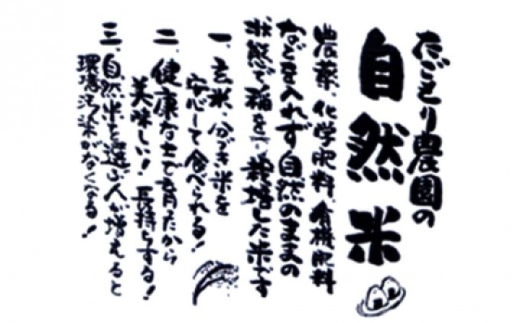 たごもり農園の
自然米
農薬、化学肥料、有機肥料
などを入れず自然のままの
状態で稲を栽培した米です
一、玄米、分づき米を
安心して食べられる!
二、健康な土で育たから
美味しい!長持ちする!
三、自然米を選ぶ人が増えると
環境汚染がなくなる!